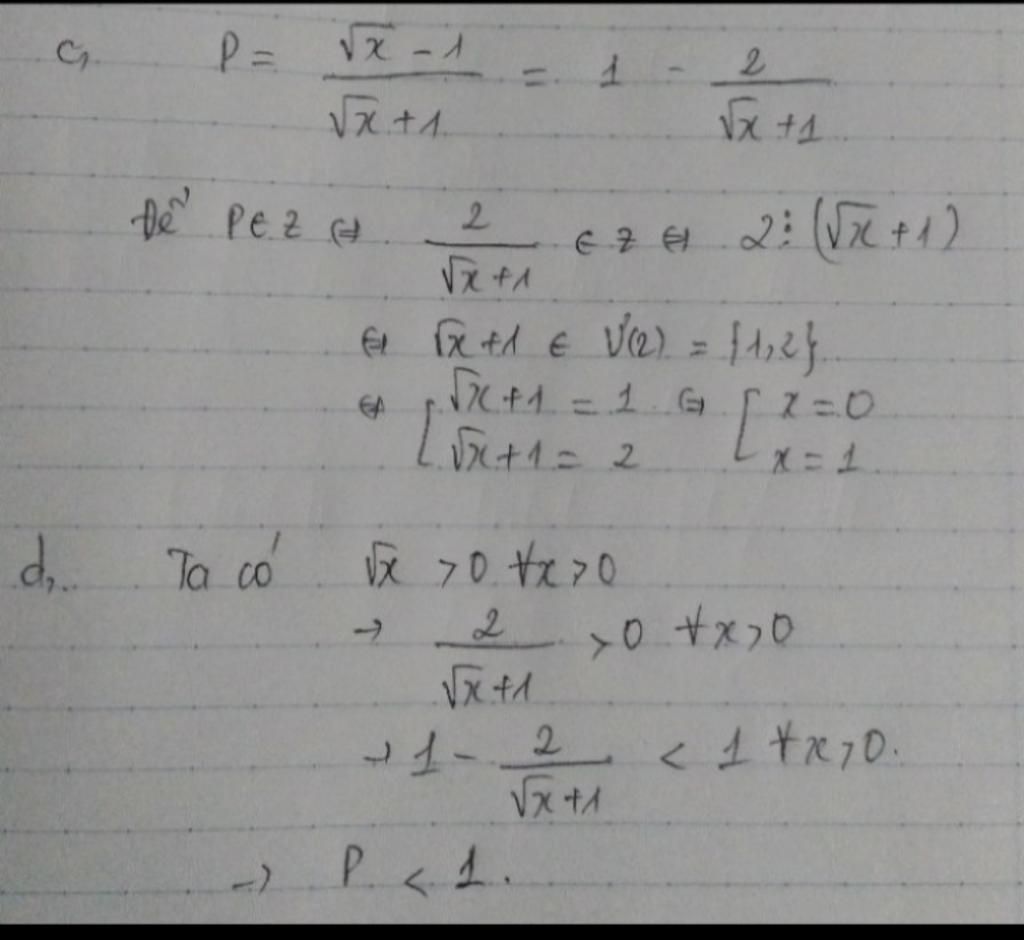 c, P = (√x - 1)/(√x + 1) = 1 - 2/(√x + 1)
Để P ∈ Z ⇔ 2/(√x + 1) ∈ Z ⇔ 2 ⋮ (√x + 1)
⇔ √x + 1 ∈ Ư(2) = {1, 2}
⇔ [ √x + 1 = 1 ⇔ [ x = 0
√x + 1 = 2 x = 1
d, Ta có √x > 0 ∀x > 0
→ 2/(√x + 1) > 0 ∀x > 0
→ 1 - 2/(√x + 1) < 1 ∀x > 0.
→ P < 1.